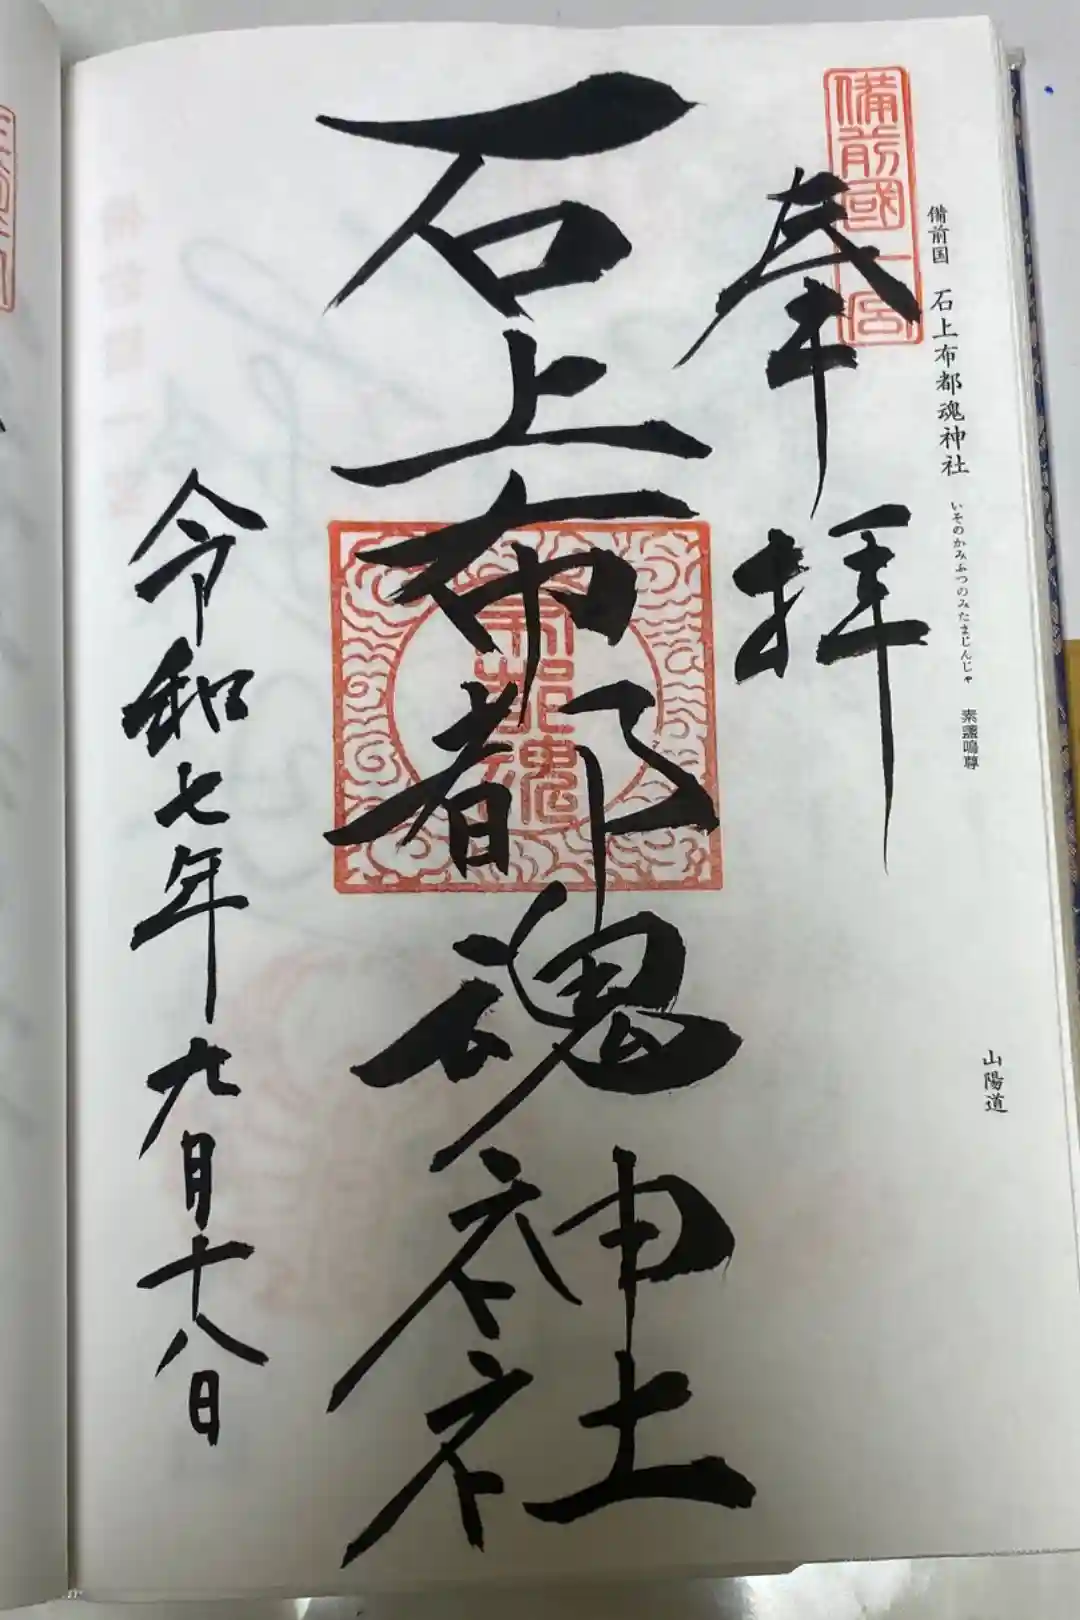 備前国 石上布都魂神社 いそのかみふつのみたまじんじゃ 素盞嗚尊
山陽道
備前國一宮
奉拝
石上布都魂神社
布都魂
令和七年九月十八日